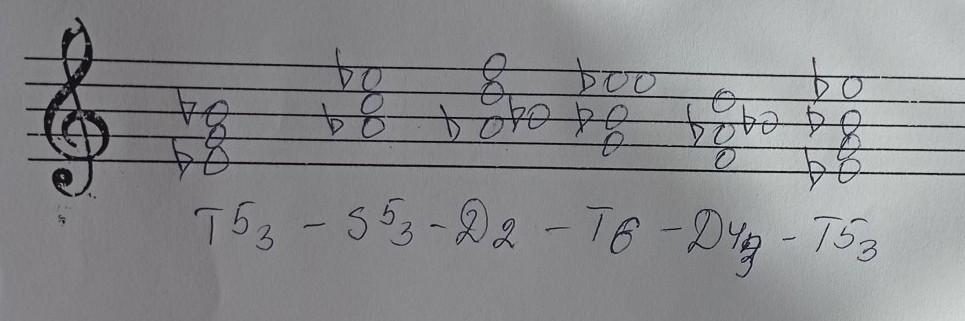 T53 - S53 - D2 - T6 - D43 - T53